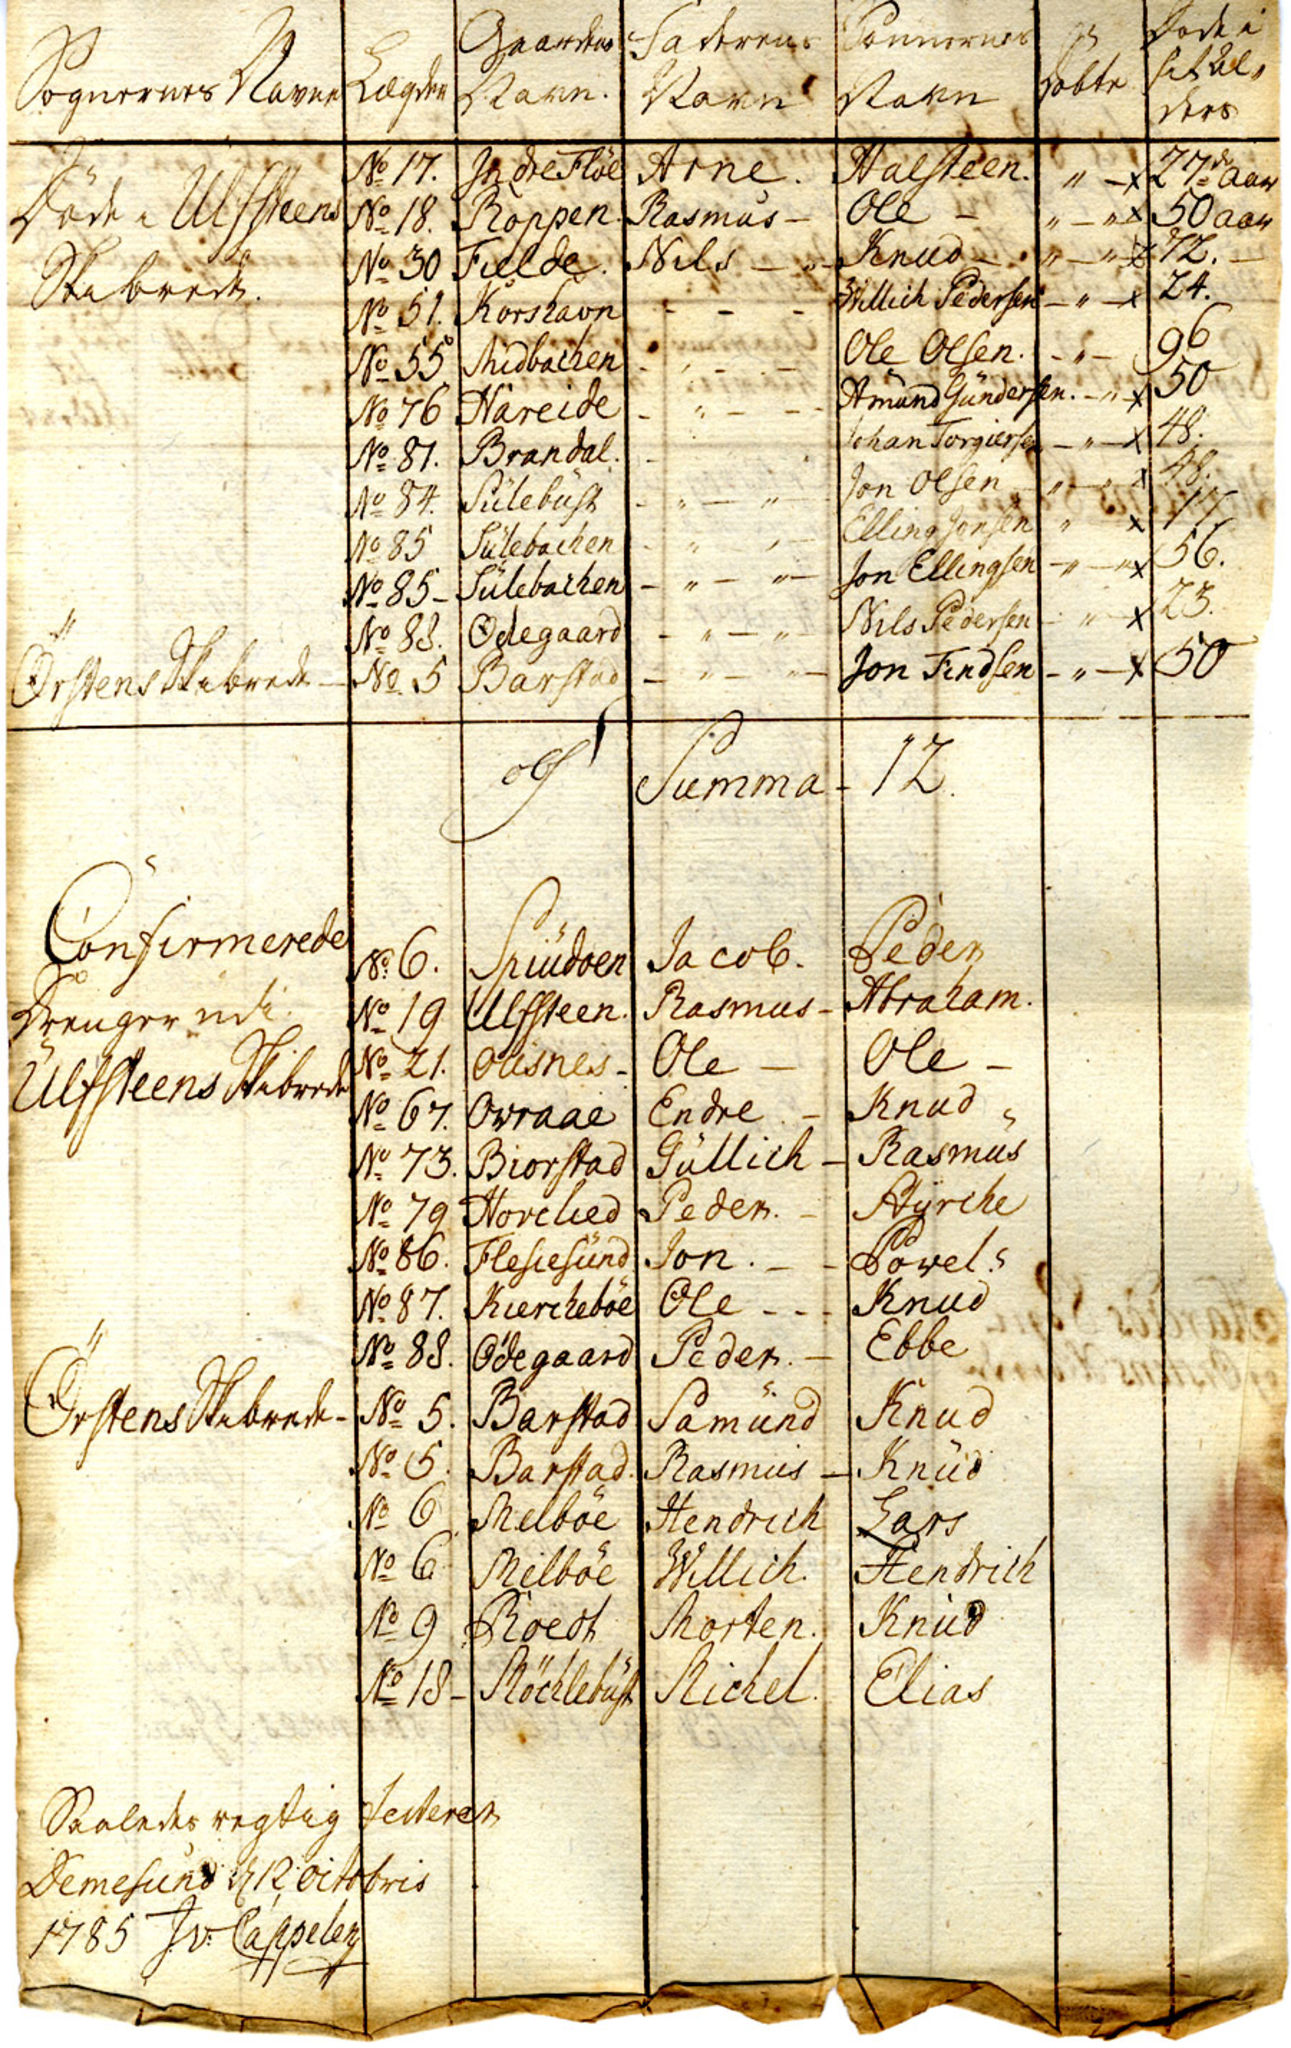 Sognernes Navne Lægder Gaardens Navn. Faderens Navn Sønnernes Navn Døbte Døde i sit Alders
Døde i Ulfsteens Skibrede.
No 17. Indre Fløe Arne. Halsteen. " - x 27 de aar
No 18. Roppen Rasmus - Ole - " - " x 50 aar
No 30 Fielde. Nils - " - Knud - " - " x 72. -
No 51. Korshavn - - - Willich Pedersen - " - x 24. -
No 55 Midbachen - " - Ole Olsen. - " - 96
No 76 Hareide - " - - Amund Gündersen. - " x 50
No 81. Brandal. - Johan Torgiersen - " - x 48.
No 84. Sülebüst - " - " Jon Olsen - " - " x 48.
No 85 Sülebachen - " - Elling Jonsen " x 17
No 85 - Sülebachen - " - " - Jon Ellingsen - " - " x 56.
No 88. Ødegaard - " - " - Nils Pedersen - " - x 23.
Ørstens Skibrede - No 5 Barstad - " - " - Jon Findsen - " - x 50
Summa - 12.
Confirmerede
Drenger udi
Ulfsteens Skibrede
No 6. Spiüdøen Jacob. Peder
No 19 Ulfsteen. Rasmus - Abraham.
No 21. Olisnes - Ole - Ole -
No 67. Ovraae Endre - Knud
No 73. Biorstad Güllich - Rasmüs
No 79 Hovelied Peder. - Styrche
No 86. Flesiesünd Jon. - - Powel.
No 87. Kierchebøe Ole - - - Knud
No 88. Ødegaard Peder. - Ebbe
Ørstens Skibrede - No 5. Barstad Samünd Knud
No 5. Barstad. Rasmus - Knüd
No 6 Melbøe Hendrich Lars
No 6 Melbøe Willich. Hendrich
No 9 Roedt Morten. Knüd
No 18 - Møchlebüst Michel. Elias
Saaledes rigtig testerer
Demesund d 12 octobris
1785 J v: Cappelen